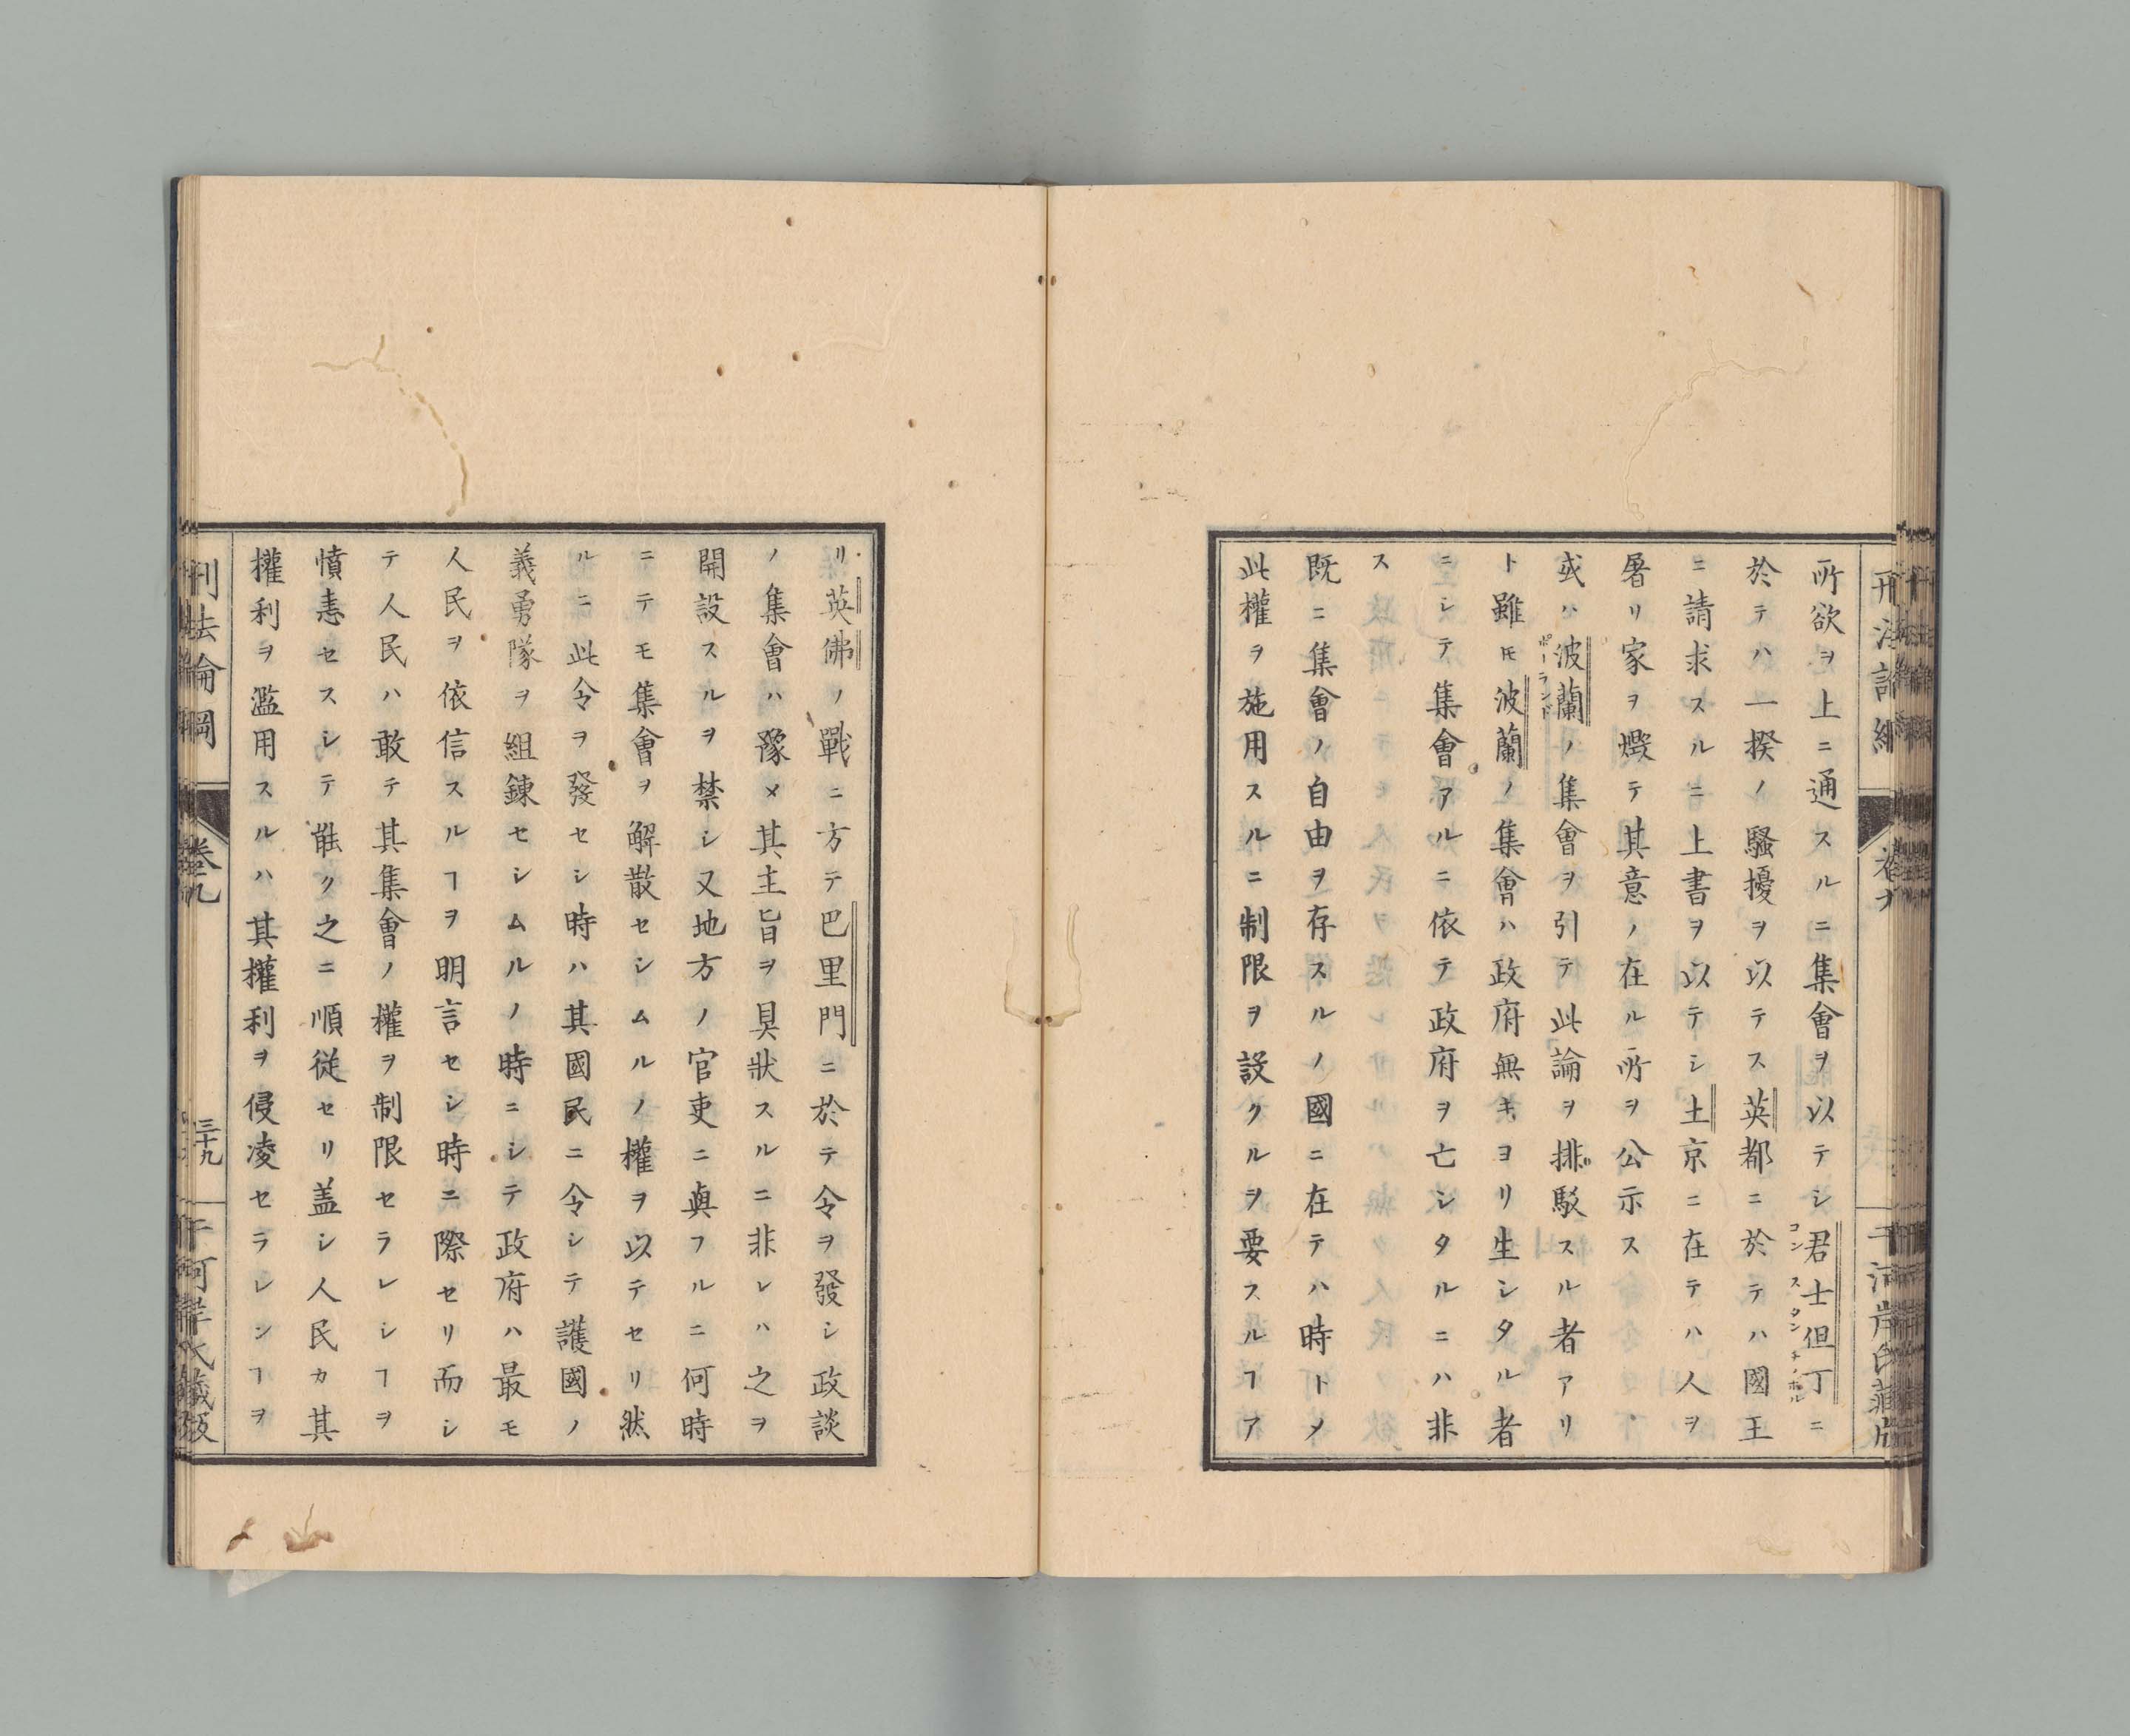 所欲ヲ上ニ通スルニ集會ヲ以テシ君士但丁ニ
コンスタンチノホル
於テハ一揆ノ騷擾ヲ以テス英都ニ於テハ國王
ニ請求スルニ上書ヲ以テシ土京ニ在テハ人ヲ
屠リ家ヲ燬テ其意ノ在ル所ヲ公示ス
或ハ波蘭ノ集會ヲ引テ此論ヲ排駁スル者アリ
ポーランド
ト雖𪜈波蘭ノ集會ハ政府無キヨリ生シタル者
ニシテ集會アルニ依テ政府ヲ亡シタルニハ非
ス
既ニ集會ノ自由ヲ存スルノ國ニ在テハ時トメ
此權ヲ施用スルニ制限ヲ設クルヲ要スルヿア
リ英佛ノ戰ニ方テ巴里門ニ於テ令ヲ發シ政談
ノ集會ハ豫メ其主旨ヲ具狀スルニ非レハ之ヲ
開設スルヲ禁シ又地方ノ官吏ニ與フルニ何時
ニテモ集會ヲ解散セシムルノ權ヲ以テセリ然
ルニ此令ヲ發セシ時ハ其國民ニ令シテ護國ノ
義勇隊ヲ組錬セシムルノ時ニシテ政府ハ最モ
人民ヲ依信スルヿヲ明言セシ時ニ際セリ而シ
テ人民ハ敢テ其集會ノ權ヲ制限セラレシヿヲ
憤恚セスシテ能ク之ニ順從セリ盖シ人民カ其
權利ヲ濫用スルハ其權利ヲ侵凌セラレンヿヲ
刑法論綱
卷九
三十九